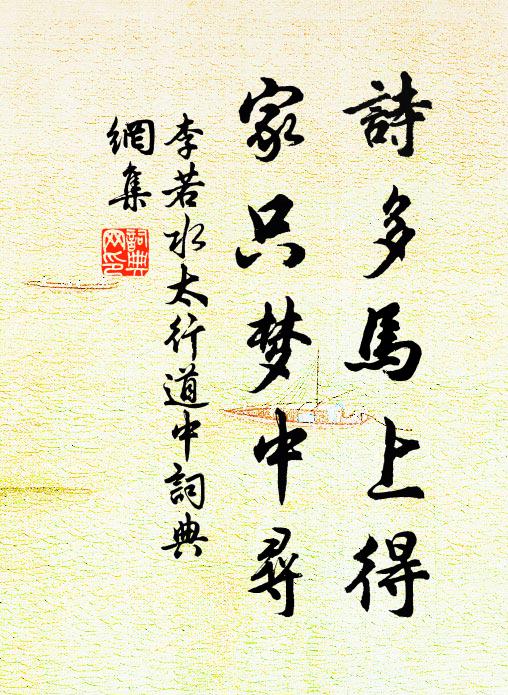 詩多馬上得
家只梦中尋
李若水太行道中詞典
網集
詞典网印